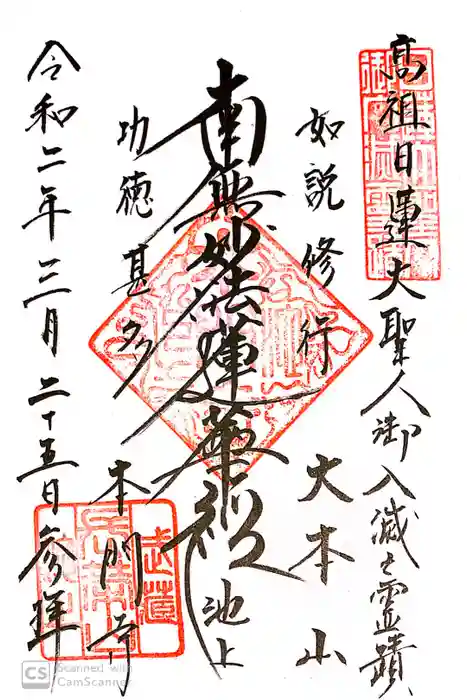 高祖日蓮大聖人御入滅之霊蹟
如説修行 大本山
南無妙法蓮華経 池上
功徳甚多 本門寺
令和二年三月二十五日参拝
CS Scanned with
CamScanner